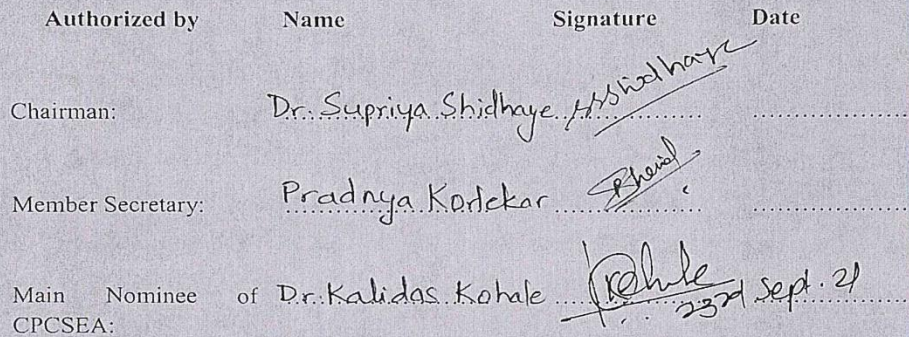 Authorized by Name Signature Date
Chairman: Dr. Supriya Shidhaye SSShidhaye
Member Secretary: Pradnya Korlekar
Main Nominee of Dr. Kalidas Kohale Kohale 23rd Sept. 21
CPCSEA: